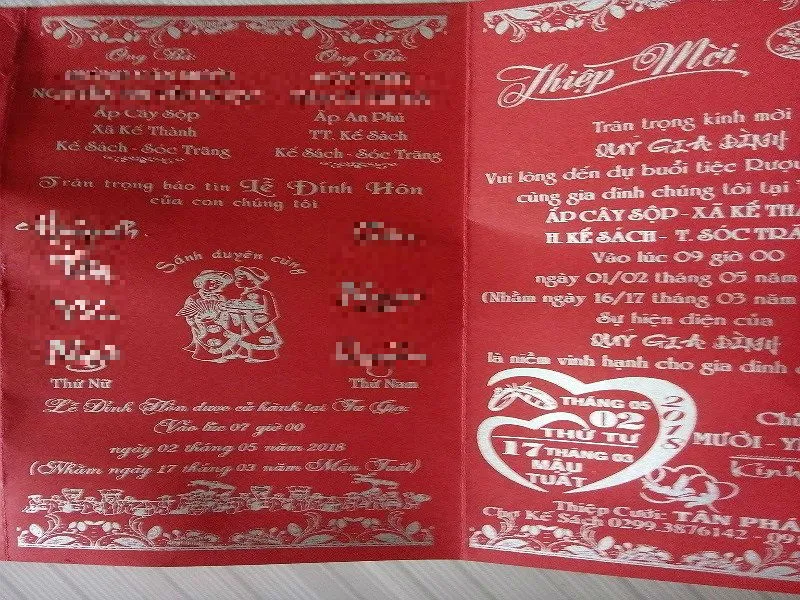 Ông Bà:
Ấp Cây Sộp
Xã Kế Thành
Kế Sách - Sóc Trăng
Ông Bà:
Ấp An Phú
TT. Kế Sách
Kế Sách - Sóc Trăng
Trân trọng báo tin Lễ Đính Hôn
của con chúng tôi
Sánh duyên cùng
Thứ Nữ
Thứ Nam
Lễ Đính Hôn được cử hành tại Tư Gia:
Vào lúc 07 giờ 00
ngày 02 tháng 05 năm 2018
(Nhằm ngày 17 tháng 03 năm Mậu Tuất)
Thiệp Mời
Trân trọng kính mời
QUÝ GIA ĐÌNH
Vui lòng đến dự buổi tiệc Rượu
cùng gia đình chúng tôi tại
ẤP CÂY SỘP - XÃ KẾ
H. KẾ SÁCH - T. SÓC
Vào lúc 09 giờ 00
ngày 01/02 tháng 05 năm
(Nhằm ngày 16/17 tháng 03 năm
Sự hiện diện của
QUÝ GIA ĐÌNH
là niềm vinh hạnh cho gia đình
THÁNG 05
02
2018
THỨ TƯ
17 THÁNG 03
MẬU
TUẤT
MƯỜI -
Thiệp Cưới: TÂN
Chợ Kế Sách 0299.3876142 - 09